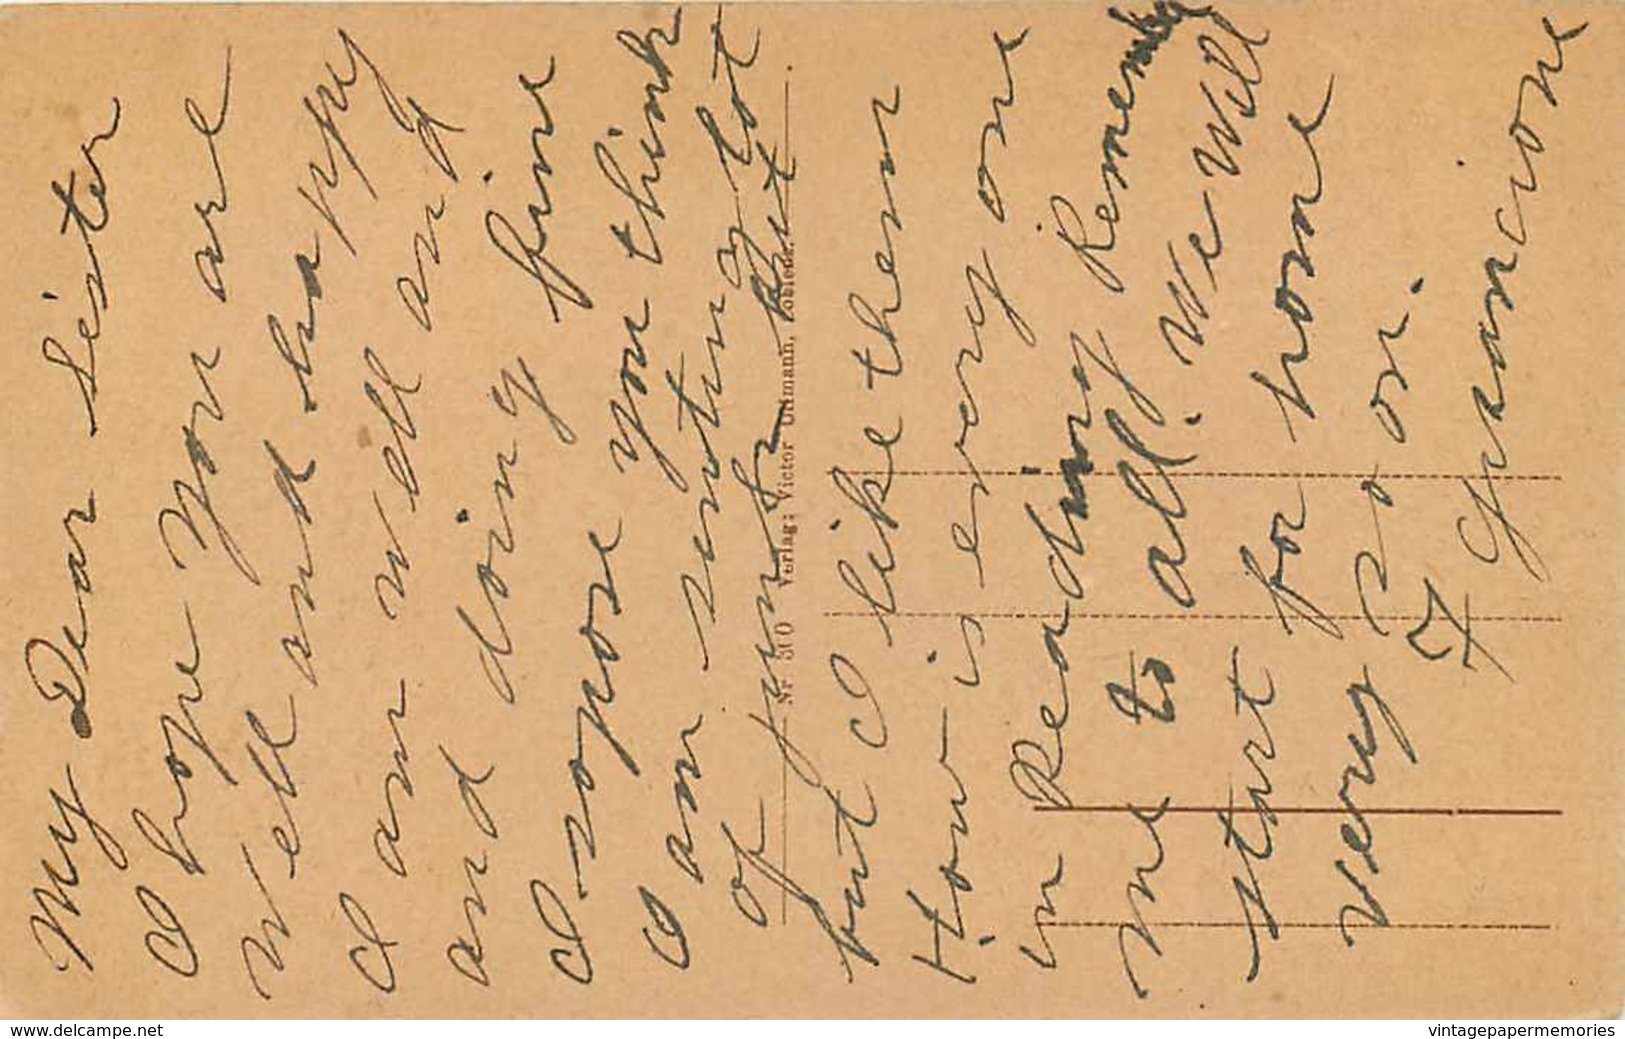 My Dear Sister
I hope You are
Well and happy
I am well and
and doing fine
I sopose you think
I am senting a lot
of junk but
but I like them
How is every one
in Reading Remember
me to all. We Will
start for home
very so on.
F
Nr 500 Verlag: Victor Ottmann, Koblenz.
www.delcampe.net
vintagepapermemories